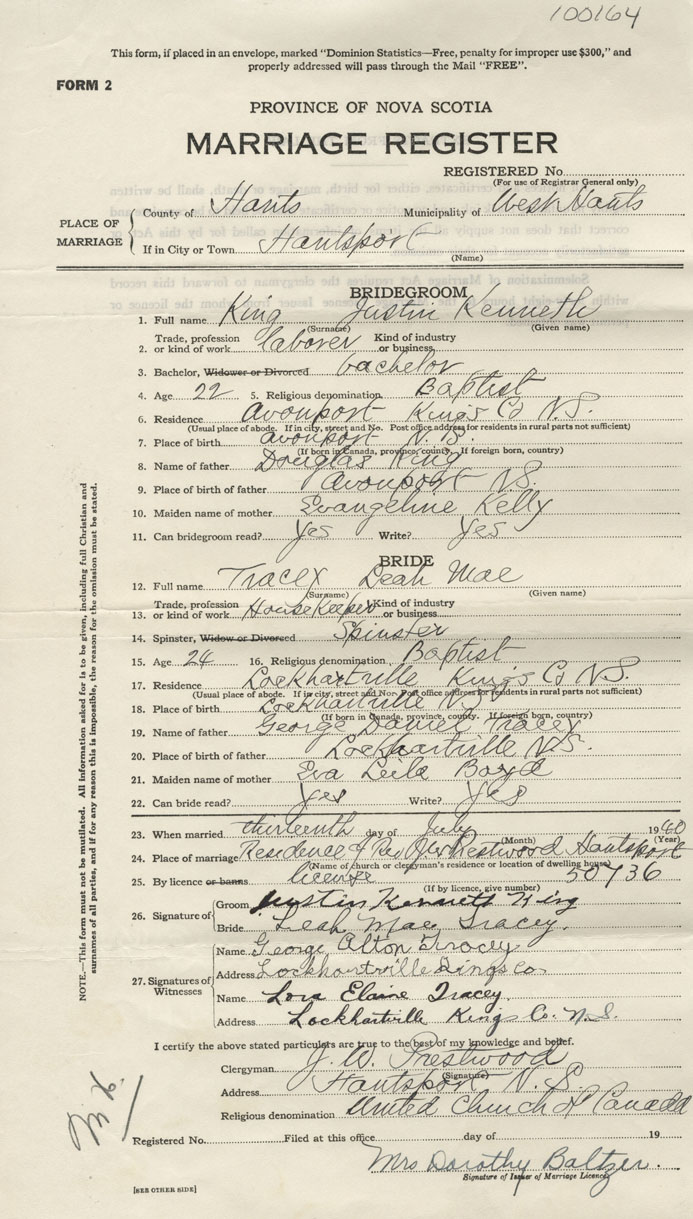 100164
This form, if placed in an envelope, marked "Dominion Statistics—Free, penalty for improper use $300," and
properly addressed will pass through the Mail "FREE".
FORM 2
PROVINCE OF NOVA SCOTIA
MARRIAGE REGISTER
REGISTERED No.
(For use of Registrar General only)
PLACE OF MARRIAGE
County of Hants Municipality of West Hants
If in City or Town Hantsport
(Name)
BRIDEGROOM
1. Full name King Justin Kenneth
(Surname) (Given name)
2. Trade, profession or kind of work laborer Kind of industry or business
3. Bachelor, Widower or Divorced bachelor
4. Age 22 5. Religious denomination Baptist
6. Residence Avonport King's Co N.S.
(Usual place of abode. If in city, street and No. Post office address for residents in rural parts not sufficient)
7. Place of birth Avonport N.S.
(If born in Canada, province, county. If foreign born, country)
8. Name of father Douglas King
9. Place of birth of father Avonport N.S.
10. Maiden name of mother Evangeline Kelly
11. Can bridegroom read? Yes Write? Yes
BRIDE
12. Full name Tracey Leah Mae
(Surname) (Given name)
13. Trade, profession or kind of work HouseKeeper Kind of industry or business
14. Spinster, Widow or Divorced Spinster
15. Age 24 16. Religious denomination Baptist
17. Residence Lockhartville King's Co N.S.
(Usual place of abode. If in city, street and No. Post office address for residents in rural parts not sufficient)
18. Place of birth Lockhartville N.S.
(If born in Canada, province, county. If foreign born, country)
19. Name of father George Daniel Tracey
20. Place of birth of father Lockhartville N.S.
21. Maiden name of mother Eva Leila Boyd
22. Can bride read? Yes Write? Yes
23. When married thirteenth day of July 1940
(Month) (Year)
24. Place of marriage Residence of Rev J.W. Prestwood Hantsport
(Name of church or clergyman's residence or location of dwelling house)
25. By licence or banns license 50736
(If by licence, give number)
26. Signature of
Groom Justin Kenneth King
Bride Leah Mae Tracey.
27. Signatures of Witnesses
Name George Alton Tracey
Address Lockhartville Kings Co.
Name Lora Elaine Tracey.
Address Lockhartville Kings Co. N.S.
I certify the above stated particulars are true to the best of my knowledge and belief.
Clergyman J. W. Prestwood
(Signature)
Address Hantsport N.S.
Religious denomination United Church of Canada
Registered No. Filed at this office day of 19
Mrs Dorothy Baltzer.
Signature of Issuer of Marriage Licence
[SEE OTHER SIDE]
NOTE.—This form must not be mutilated. All information asked for is to be given, including full Christian and
surnames of all parties, and if for any reason this is impossible, the reason for the omission must be stated.